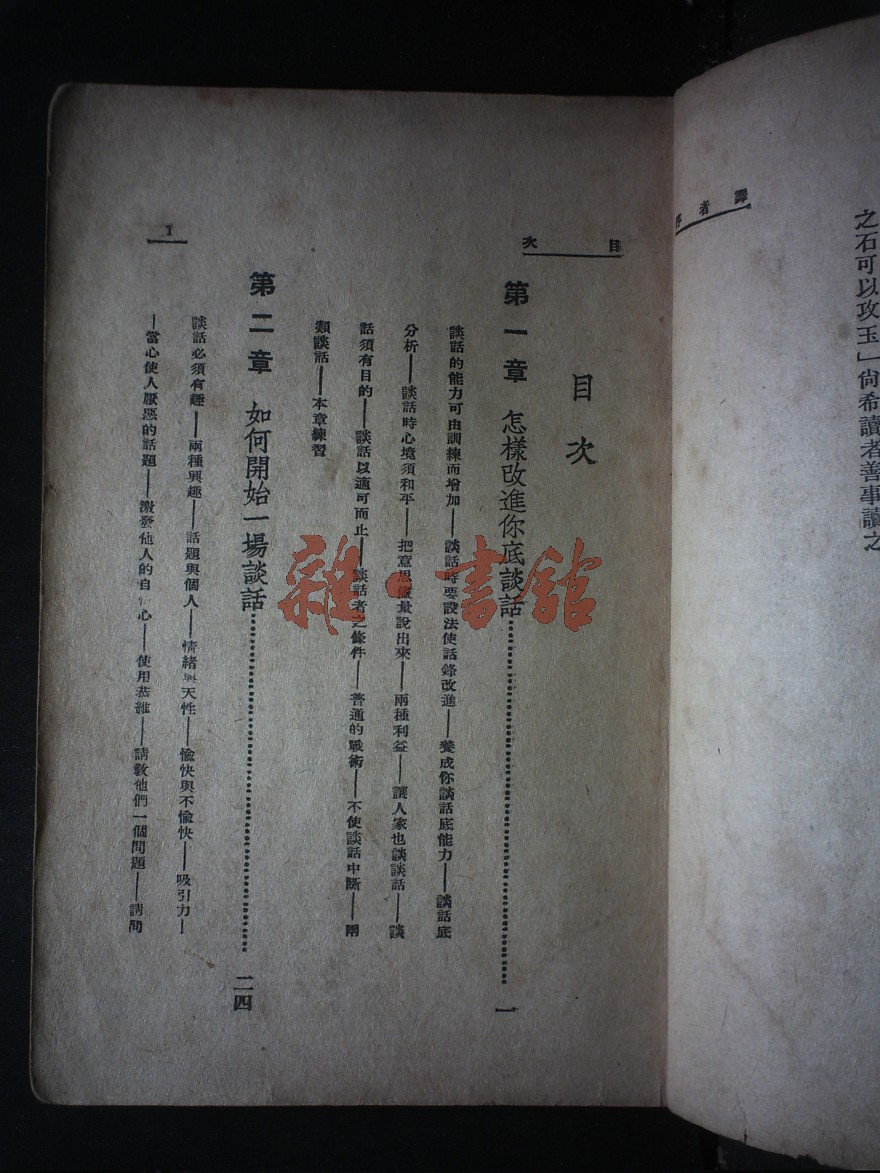 譯者序
之石可以攻玉」尙希讀者善事讀之
目次
目次
第一章 怎樣改進你底談話……一
談話的能力可由訓練而增加——談話時要設法使話鋒改進——養成你談話底能力——談話底
分析——談話時心境須和平——把意思儘量說出來——兩種利益——讓人家也談談話——談
話須有目的——談話以適可而止——談話者之條件——普通的戰術——不使談話中斷——兩
類談話——本章練習
第二章 如何開始一場談話……二四
談話必須有趣——兩種興趣——話題與個人——情緒與天性——愉快與不愉快——吸引力—
—當心使人厭惡的話題——激發他人的自心——使用恭維——請敎他們一個問題——請問
1
雜·書館